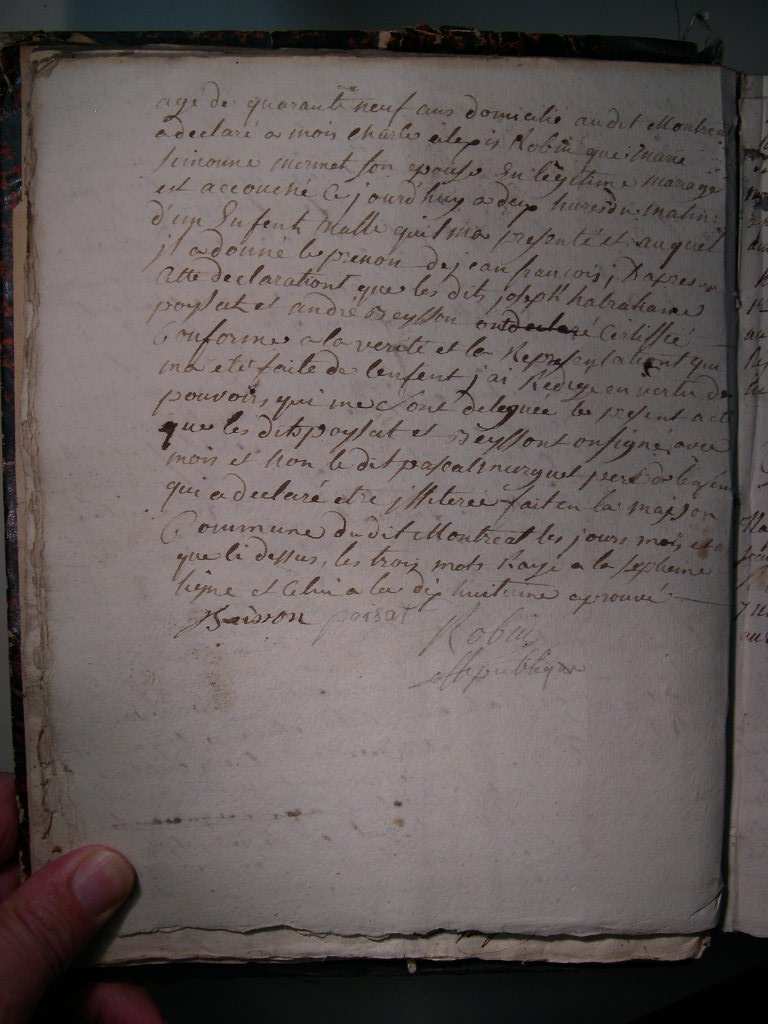 agé de quarante neuf ans domicilié audit Montreal
a declaré a mois Charle alepis Robin que Marie
simonne mermet son epouse En legitime mariage
est accouché Ce jourd'huy a deux hures du matin
d'un Enfent malle quil ma presenté et auquel
jl a donné le prenon de jean francois, D'apres
Cette declarationt que les dits joseph habrahame
poysat et andré Beysson ont declaré Certiffié
Conforme a la verité et la Representationt qui
ma eté faite de lenfent j'ai Redigé en vertu des
pouvoirs qui me Sont delegués le present acte
que les dits poysat et Beysson ont signé avec
mois et non le dit pascal murguet pere de
qui a declaré etre jlliteré fait en la maison
Commune du dit Montreal les jours mois et
que Ci dessus, les trois mots Rayé a la septieme
ligne et Celui a la dix huitieme aprouvé
Baisson poisat
Robin
off publique